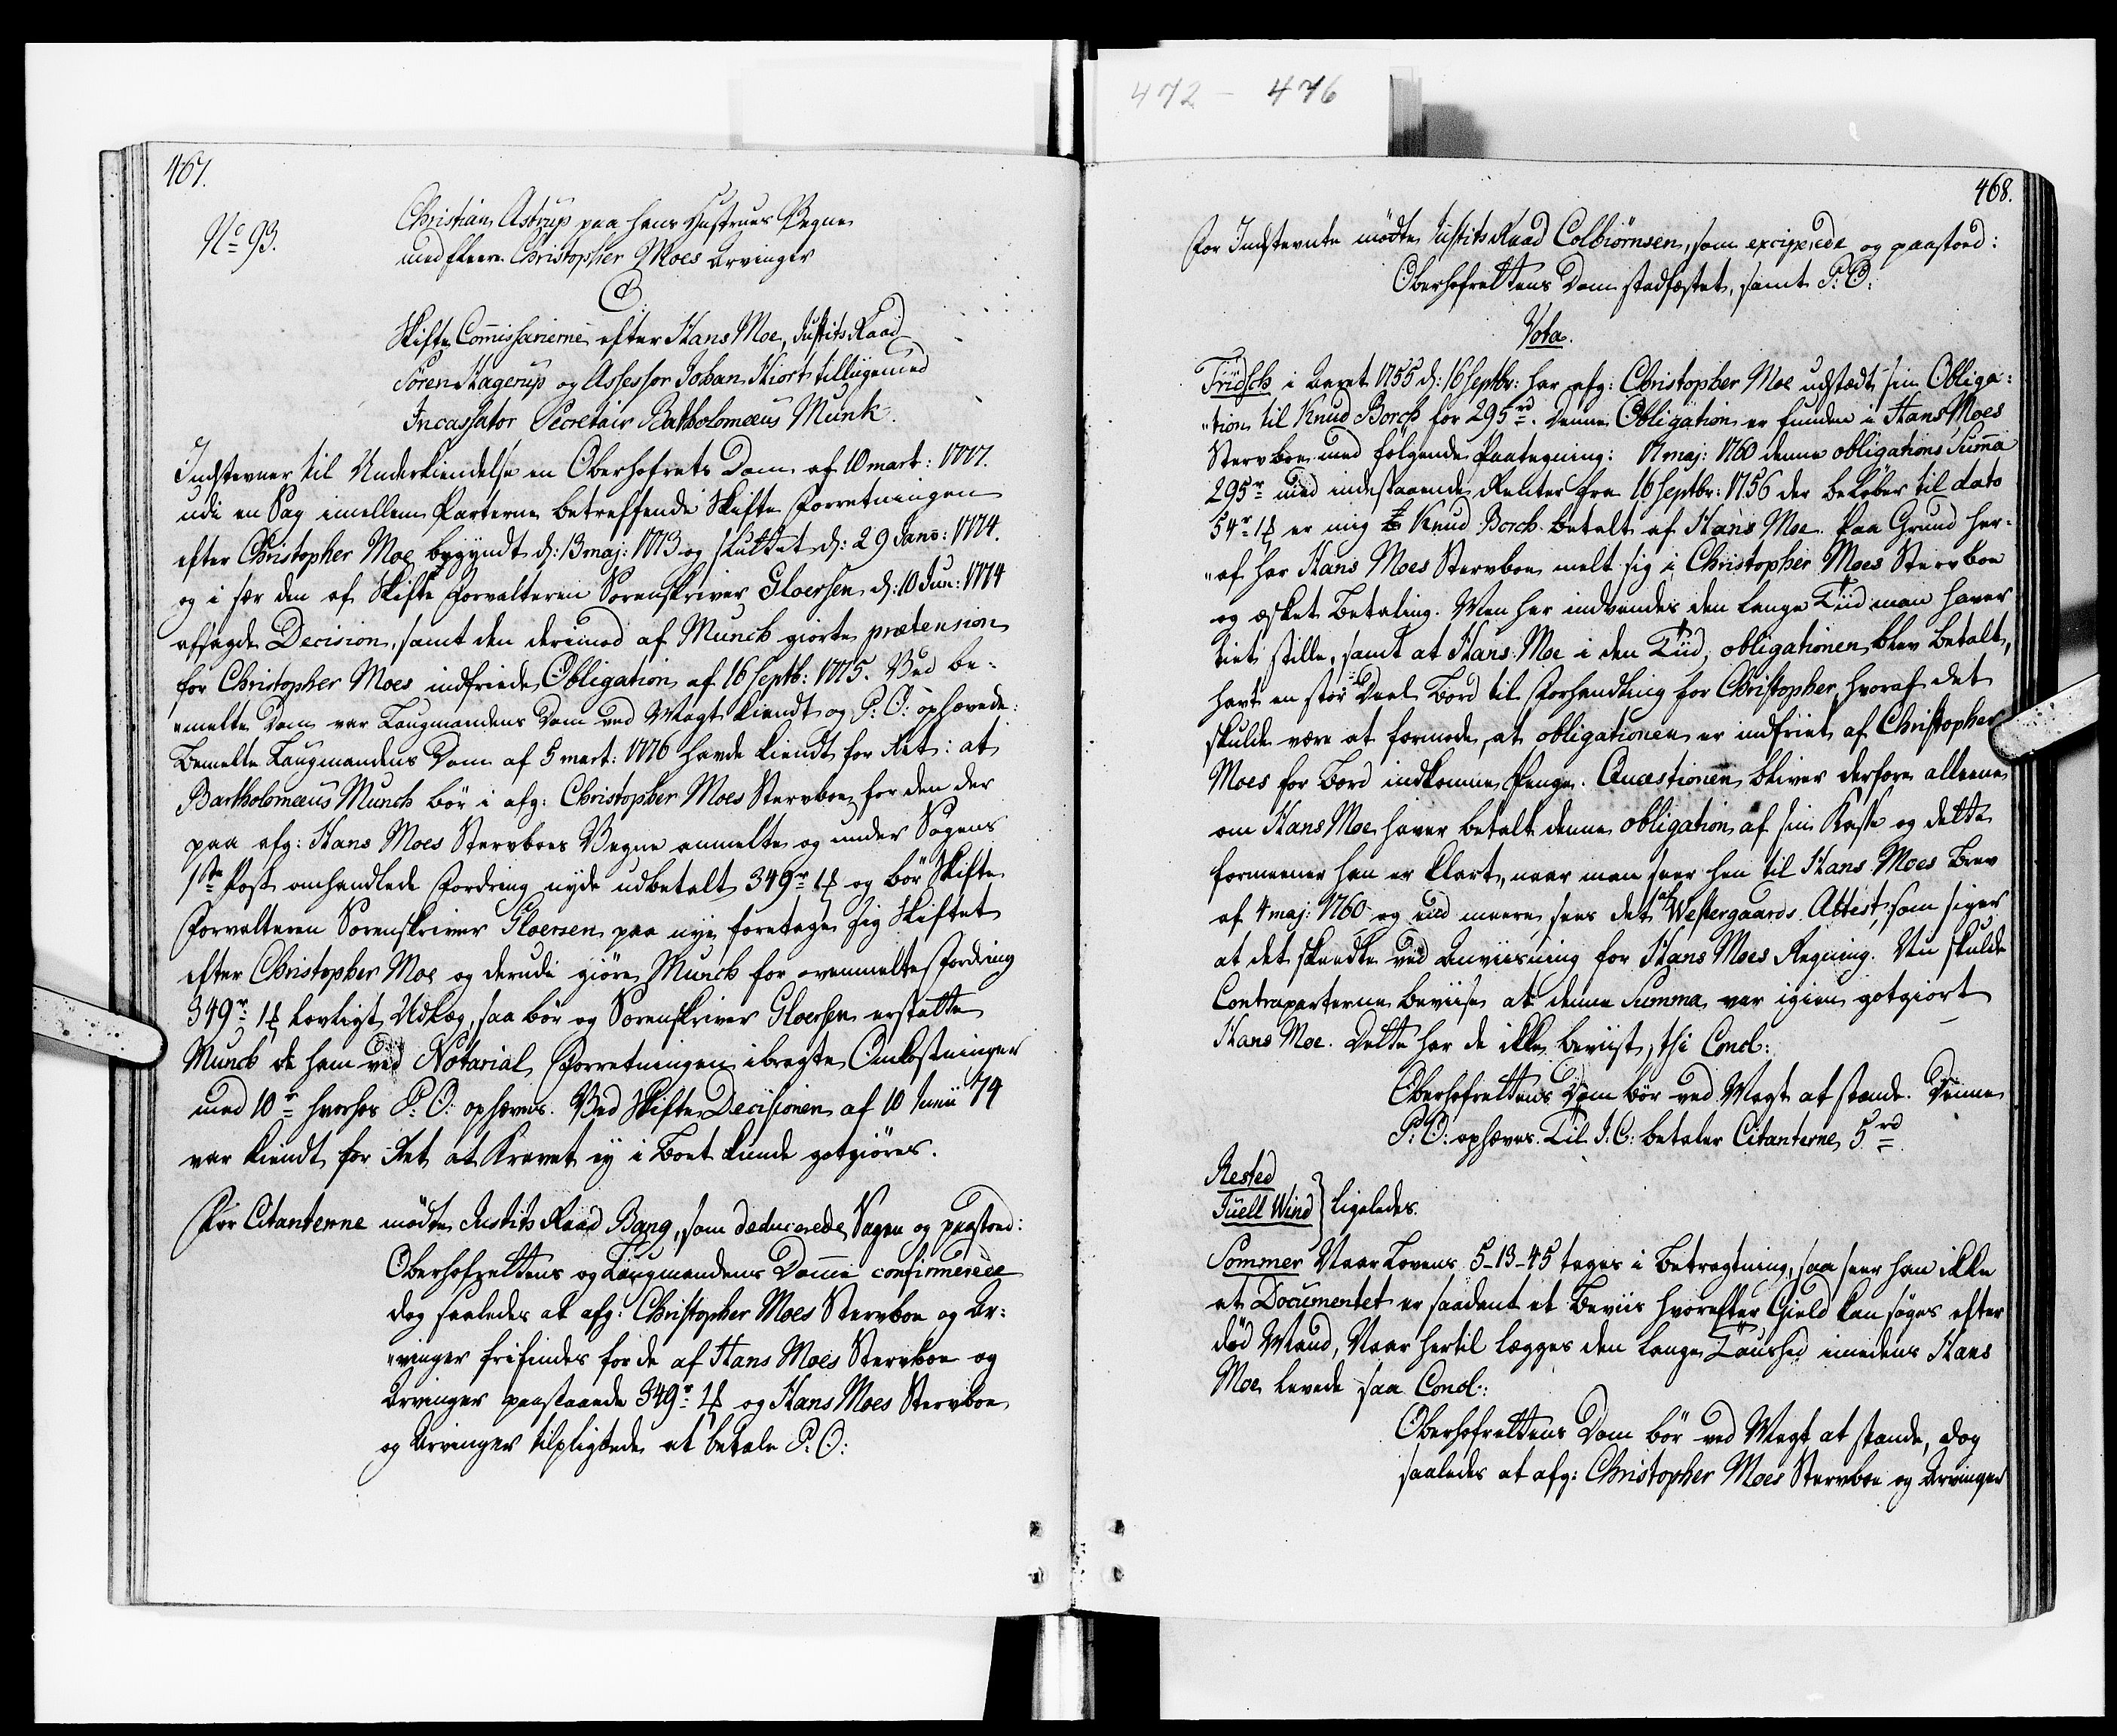 472 - 476
467.
No 93.
Christian Astrup paa hans Hustrues Vegne
med fleere Christopher Moes Arvinger
C/
Skifte Commissarierne efter Hans Moe, Justits Raad
Sören Hagerup og Assessor Johan Hiort tilligemed
Incassator Secretair Batholomæus Munk.
Indstevner til Underkiendelse en Oberhofrets Dom af 10 mart: 1777.
udi en Sag imellem Parterne betreffende Skifte Forretningen
efter Christopher Moe begyndt d: 13 maj: 1773 og sluttet d: 29 Jano: 1774.
og i sær den af Skifte Forvalteren Sorenskriver Gloersen d: 10 Jun: 1774
afsagde Decision, samt den derimod af Munch giorte prætension
for Christopher Moes indfriede Obligation af 16 Septb: 1775. Ved be-
"melte Dom var Laugmandens Dom ved Magt kiendt og P: O: ophævede:
Bemelte Laugmandens Dom af 5 mart: 1776 havde kiendt for Ret: at
Bartholomæus Munch bör i afg: Christopher Moes Stervboe for den der
paa afg: Hans Moes Stervboes Vegne anmelte og under Sagens
1ste Post omhandlede Fordring nyde udbetalt 349r 1ß og bör Skifte
Forvalteren Sorenskriver Gloersen paa nye foretage sig Skiftet
efter Christopher Moe og derudi giöre Munch for ovenmelte Fordring
349r 1ß lovligt Udlæg, saa bör og Sorenskriver Gloersen erstatte
Munch de ham ved Notarial Forretningen ibragte Omkostninger
med 10r hvorhos P: O: ophæves. Ved Skifte Decisionen af 10 Junii 74
var kiendt for Ret at Kravet ey i Boet kunde gotgiöres.
For Citanterne mödte Justits Raad Bang, som deducerede Sagen og paastoed:
Oberhofrettens og Laugmandens Domme confirmerede
dog saaledes at afg: Christopher Moes Stervboe og Ar:
"vinger frifindes for de af Hans Moes Stervboe og
Arvinger paastaaede 349r 1ß og Hans Moes Stervboe
og Arvinger tilpligtede at betale P: O:
468.
For Indstevnte mödte Justits Raad Colbiörnsen, som excipierede og paastoed:
Oberhofrettens Dom stadfæstet, samt P: O:
Vota.
Fridsch i Aaret 1755 d: 16 Septbr: har afg: Christopher Moe udstædt sin Obliga:
"tion til Knud Borch for 295rd. Denne Obligation er funden i Hans Moes
Stervboe med fölgende Paategning: 17 maj: 1760 denne obligations Summa
295r med indestaaende Renter fra 16 Septbr: 1756 der belöber til dato
54r 1ß er mig Knud Borch betalt af Hans Moe. Paa Grund her-
"af har Hans Moes Stervboe melt sig i Christopher Moes Stervboe
og æsket Betaling. Men her indvendes den lange Tiid man haver
tiet stille, samt at Hans Moe i den Tiid, obligationen blev betalt,
havt en stor Deel Bord til Forhandling for Christopher, hvoraf det
skulde være at formode, at obligationen er indfriet af Christopher
Moes for Bord indkomne Penge. Quæstionen bliver derfore alleene
om Hans Moe haver betalt denne obligation af sin Kasse og dette
formeener han er klart, naar man seer hen til Hans Moes Brev
af 4 maj: 1760 og end meere sees det af Westergaards Attest, som siger
at det skeedte ved Anviisning for Hans Moes Regning. Nu skulde
Contraparterne beviise at denne Summa var igien gotgiort
Hans Moe. Dette har de ikke beviist, thi Concl:
Oberhofrettens Dom bör ved Magt at stande. Denne
P: O: ophæves. Til J: C: betaler Citanterne 5rd.
Rested
Juell Wind } ligeledes.
Sommer Naar Lovens 5-13-45 tages i Betragtning, saa seer han ikke
at Documentet er saadant et Beviis hvorefter Gield kan söges efter
död Mand, Naar hertil lægges den lange Taushed imedens Hans
Moe levede saa Concl:
Oberhofrettens Dom bör ved Magt at stande, dog
saaledes at afg: Christopher Moes Stervboe og Arvinger